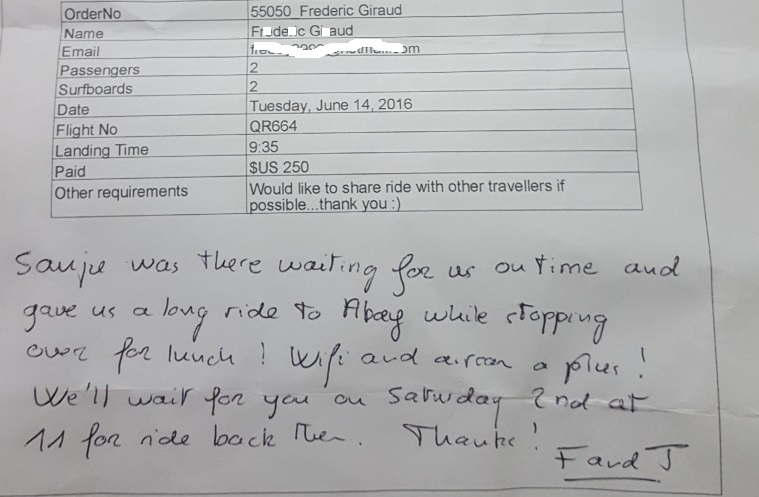 OrderNo 55050 Frederic Giraud
Name
Email
Passengers 2
Surfboards 2
Date Tuesday, June 14, 2016
Flight No QR664
Landing Time 9:35
Paid $US 250
Other requirements Would like to share ride with other travellers if
possible...thank you :)
was there waiting for us on time and
gave us a long ride to Abay while stopping
over for lunch ! Wifi and aircon a plus !
We'll wait for you on Saturday 2nd at
11 for ride back then. Thanks !
F and J